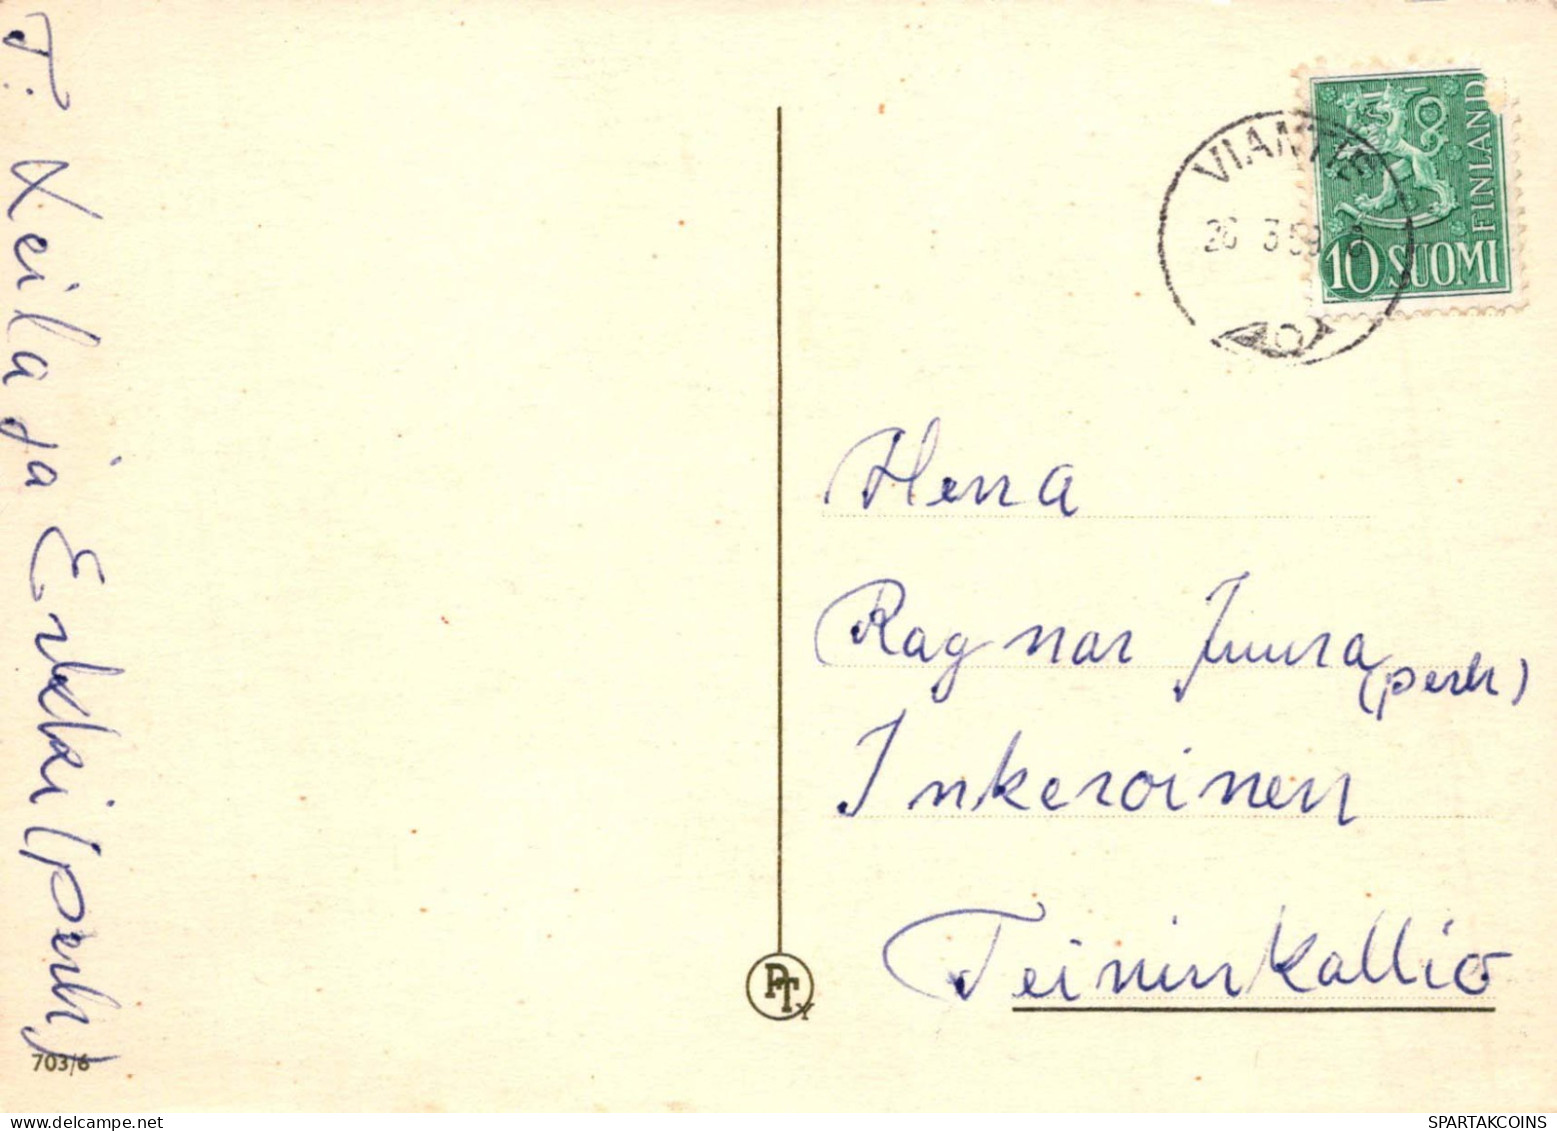 T: Keila ja Erkki (perh)
VIANTIE
3 59
FINLAND
10 SUOMI
Herra
Ragnar Juura (perh)
Inkeroinen
Teininkallio
PTY
703/6
SPARTAKCOINS